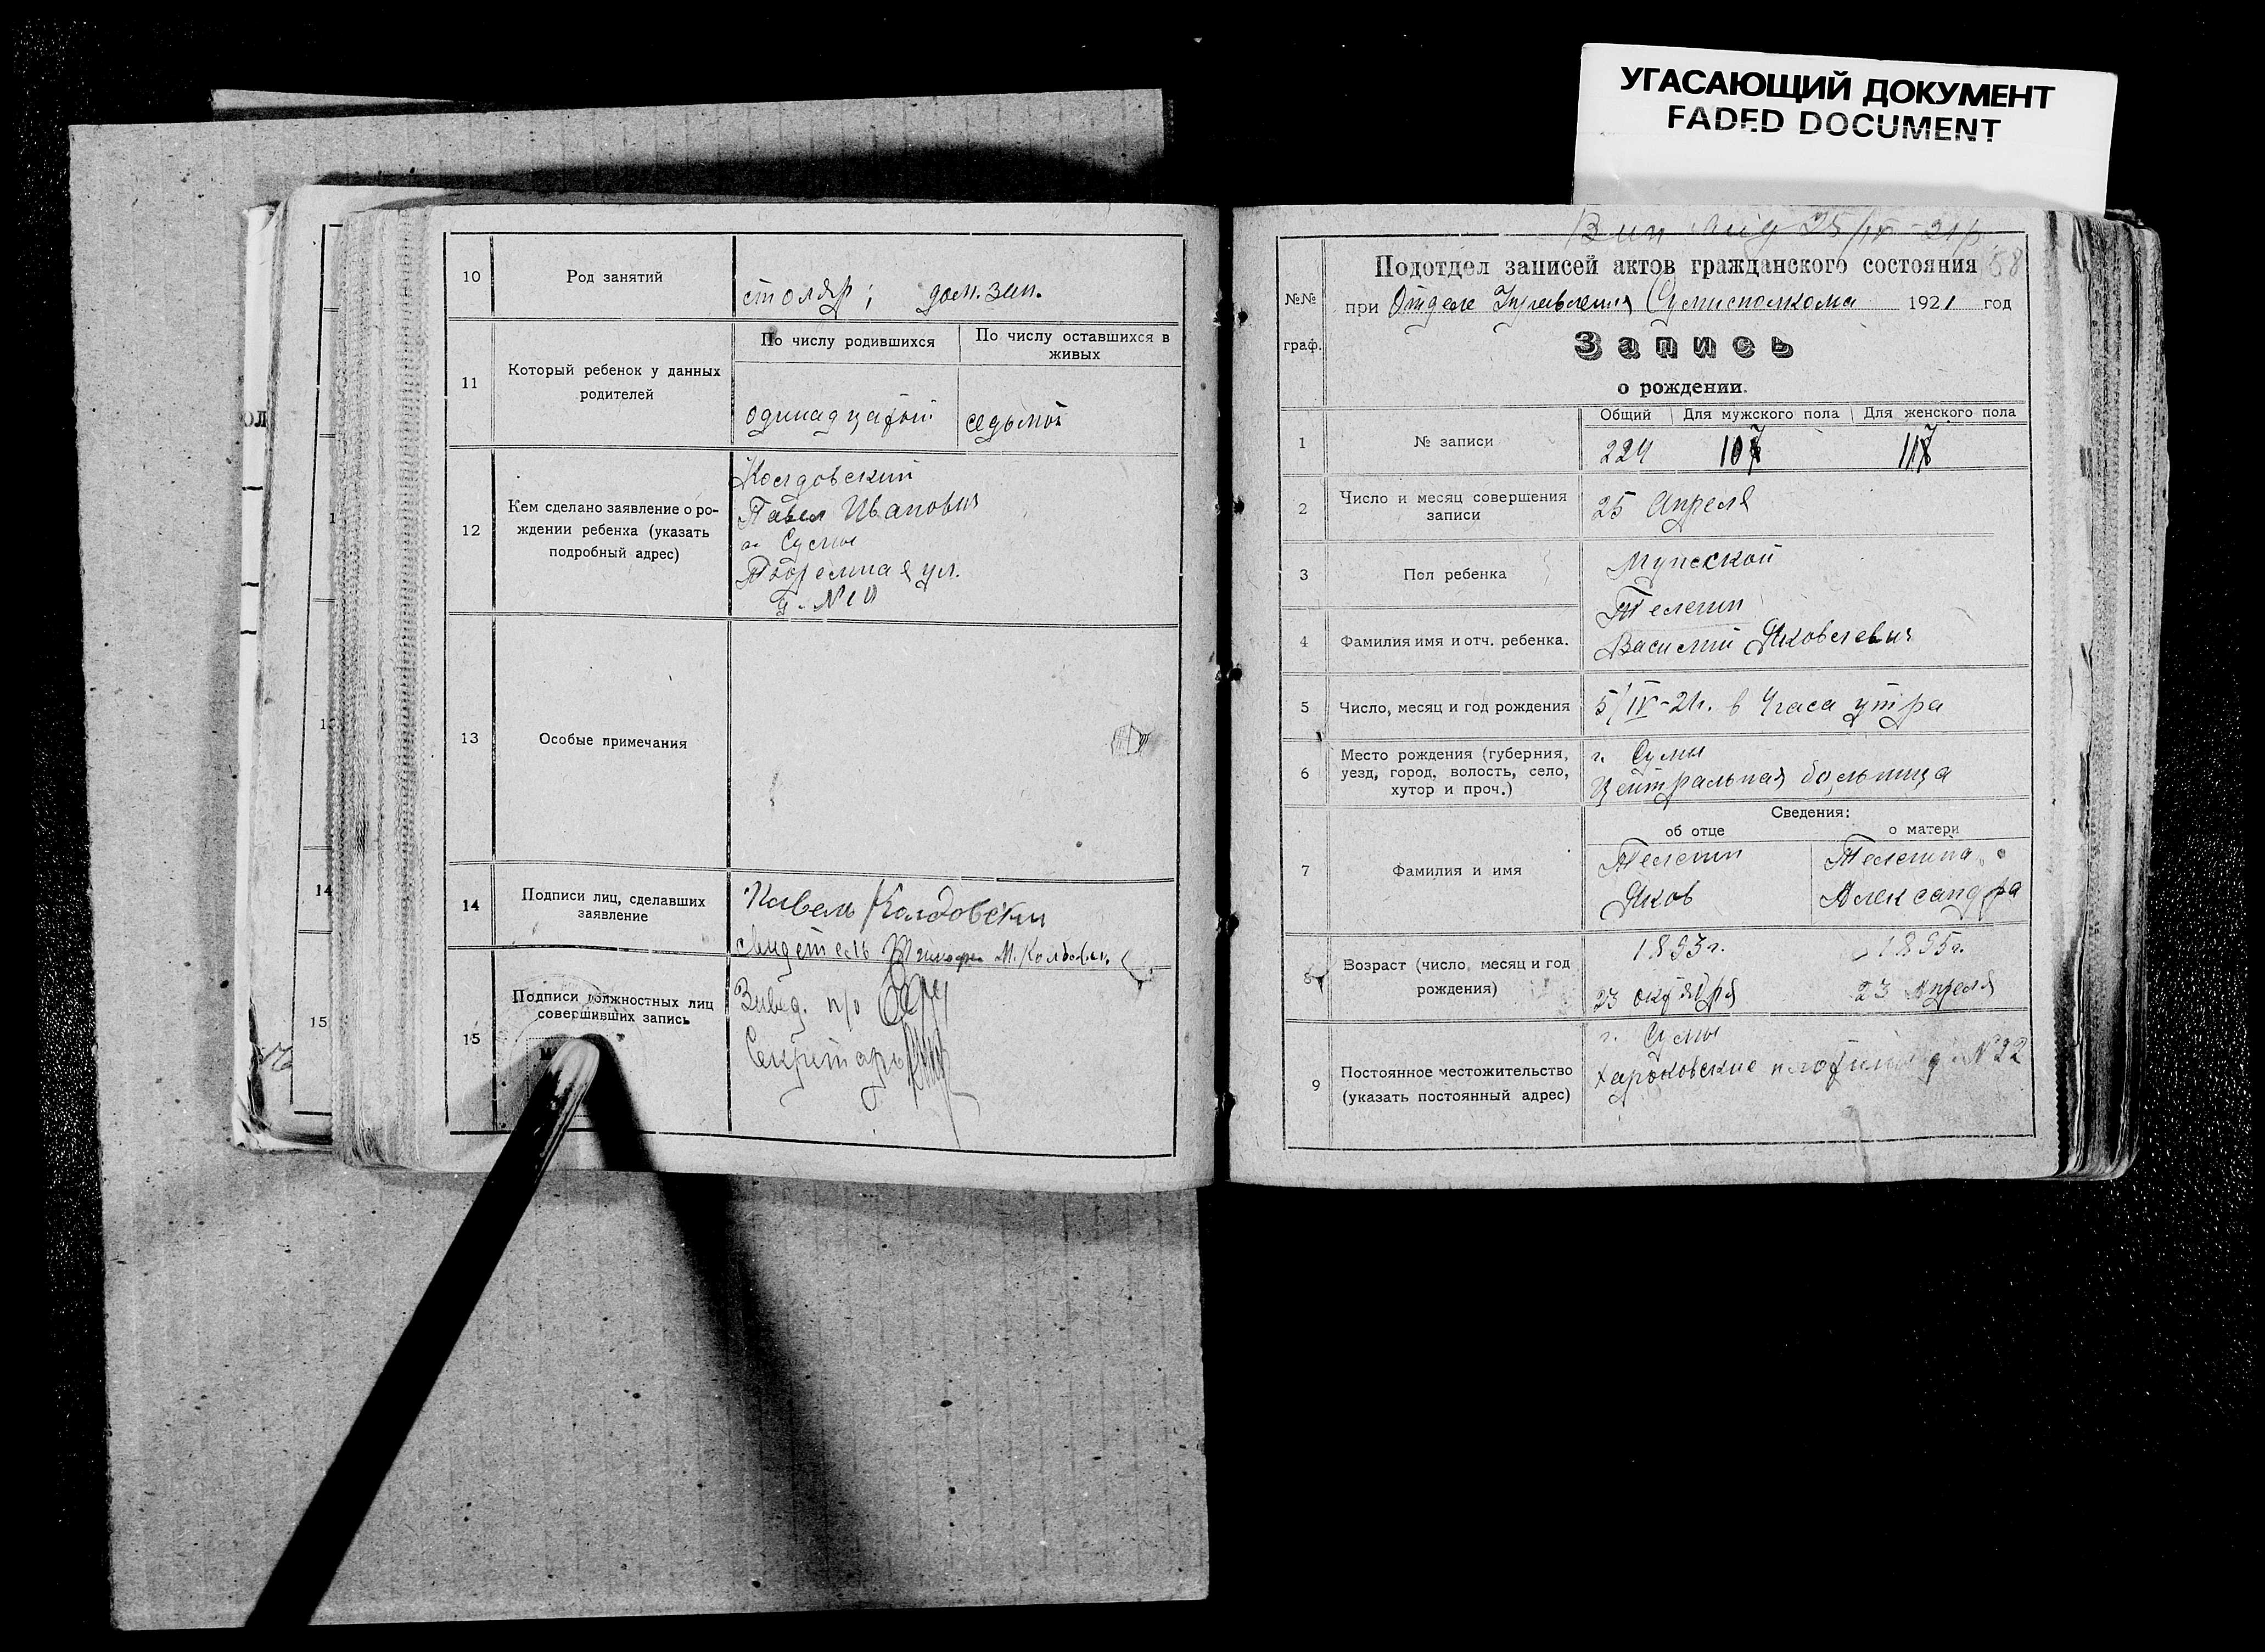 УГАСАЮЩИЙ ДОКУМЕНТ
FADED DOCUMENT
10
Род занятий
столяр; дом. зан.
11
Который ребенок у данных
родителей
По числу родившихся
По числу оставшихся в
живых
одинадцатый
седьмой
12
Кем сделано заявление о ро-
ждении ребенка (указать
подробный адрес)
Павел Иванович
г. Сумы
ул.
13
Особые примечания
14
Подписи лиц, сделавших
заявление
Павел
свидетель
15
Подписи должностных лиц
совершивших запись
Завед. п/о
Секретарь
25/IV-21
Подотдел записей актов гражданского состояния 58
№№
граф.
при Отделе Управления Сумисполкома 1921 год
Запись
о рождении.
Общий Для мужского пола Для женского пола
1
№ записи
224 107 117
2
Число и месяц совершения
записи
25 Апреля
3
Пол ребенка
Мужской
4
Фамилия имя и отч. ребенка.
Телегин
Василий Яковлевич
5
Число, месяц и год рождения
5/IV-21г. в 4 часа утра
6
Место рождения (губерния,
уезд, город, волость, село,
хутор и проч.)
г. Сумы
Центральная больница
Сведения:
об отце
о матери
7
Фамилия и имя
Телегин
Яков
Телегина
Александра
8
Возраст (число, месяц и год
рождения)
1893г.
23 октября
1895г.
23 Апреля
9
Постоянное местожительство
(указать постоянный адрес)
г. Сумы
№22